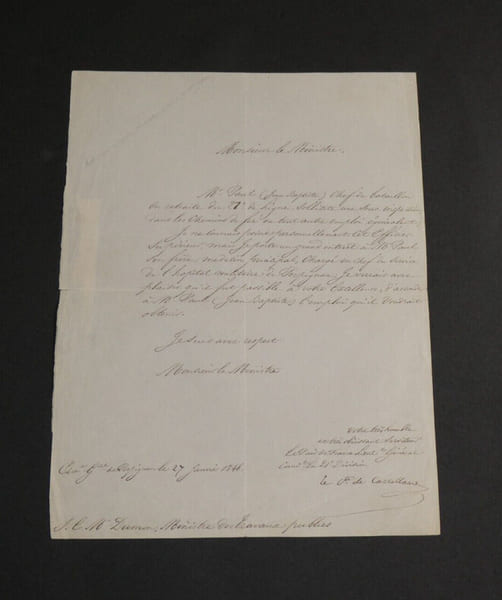 Monsieur le Ministre,
Mr. Paul (Jean Baptiste) Chef de bataillon
en retraite du de Ligne Sollicite une Sous
dans les Chemins de fer ou tout autre emploi équivalent.
Je ne connois point personnellement cet Officier
Supérieur, mais je porte un grand intérêt à Mr. Paul
Son frère, médecin principal, Chargé en chef du Service
de l'hopital militaire de Perpignan. Je verrais avec
plaisir qu'il fut possible à votre Excellence, d'accorder
à Mr. Paul (Jean Baptiste) l'emploi qu'il voudrait
obtenir.
Je suis avec respect
Monsieur le Ministre
votre très humble
et très obéissant Serviteur
Le Pair de France Lieut. Général
Comt. la 21e Division
le Cte. de Castellane
Perpignan le 27 Janvier 1846.
S. E. Mr. Dumon, Ministre des Travaux publics